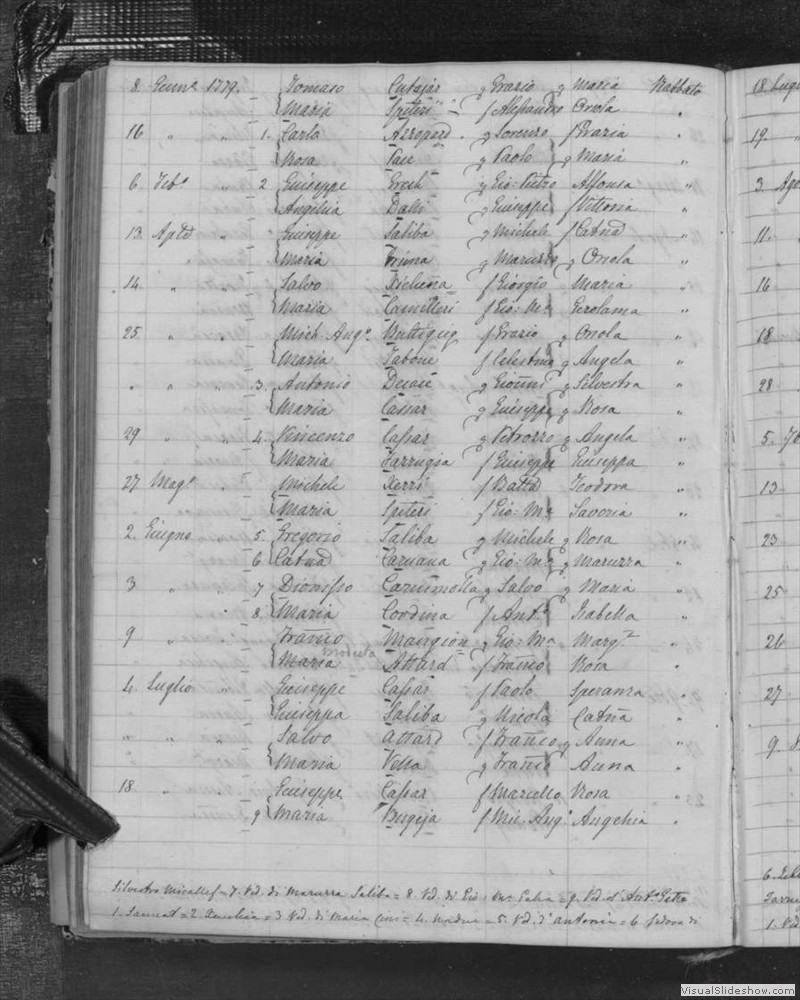 8. Genn.o 1779. Tomaso Cutajar q Grazio q Maria Rabbato 18 Lugl
Maria Spiteri f Alessandro Orsola "
16 " " 1. Carlo Azzopard q Lorenzo f Grazia " 19.
Rosa Pace q Paolo q Maria "
6. Feb.o " 2 Giuseppe Grech q Gio: Pietro Alfonsa " 3. Ago
Angelica Dalli q Giuseppe f Vittoria "
13. Ap.le " Giuseppe Saliba q Michele f Catna " 11.
Maria q Maruzzo q Orsola "
14 " " Salvo Xicluna f Giorgio Maria " 16
Maria Camilleri f Gio: Ma Gerolama "
25 " " Mich. Ang.o Buttigieg f Grazio q Orsola " 18
Maria Tabone f Celestino q Angela "
" " " 3. Antonio q Gioanni q Silvestra " 28
Maria Cassar q Giuseppe q Rosa "
29 " " 4. Vincenzo Cassar q Petrozzo q Angela " 5. 7b
Maria Farrugia f Giuseppe Giuseppa "
27 Mag.o " Michele Xerri f Batta Teodora " 13
Maria Spiteri f Gio: Ma Savona "
2. Giugno 5. Gregorio Saliba q Michele q Rosa " 23
6 Catna Caruana q Gio: Ma q Maruzza "
3 " " 7 Dionisio q Salvo q Maria " 25
8. Maria Cordina f Ant.o Isabella "
9 " Franco Mangion q Gio: Ma Marg.a " 26
Maria Modesta Attard f Franco Rosa "
4. Luglio " Giuseppe Cassar f Paolo Speranza " 27
Giuseppa Saliba q Nicola Catna "
" " " Salvo Attard f Franco q Anna " 9. 8
Maria Vella q Franco Anna "
18 Giuseppe Cassar f Marcello Rosa "
9 Maria Bugeja f Mic. Ang.o Angelica "
Silvestro Micallef = 7. Vd. di Maruzza Saliba = 8. Vd. di Gio: Ma = 9. Vd. d'Ant.o
1. Sannat = 2. Xeuchia = 3 Vd. di Maria = 4. = 5. Vd. d'Antonia = 6. Vedova di
1. Vd.
VisualSlideshow.com